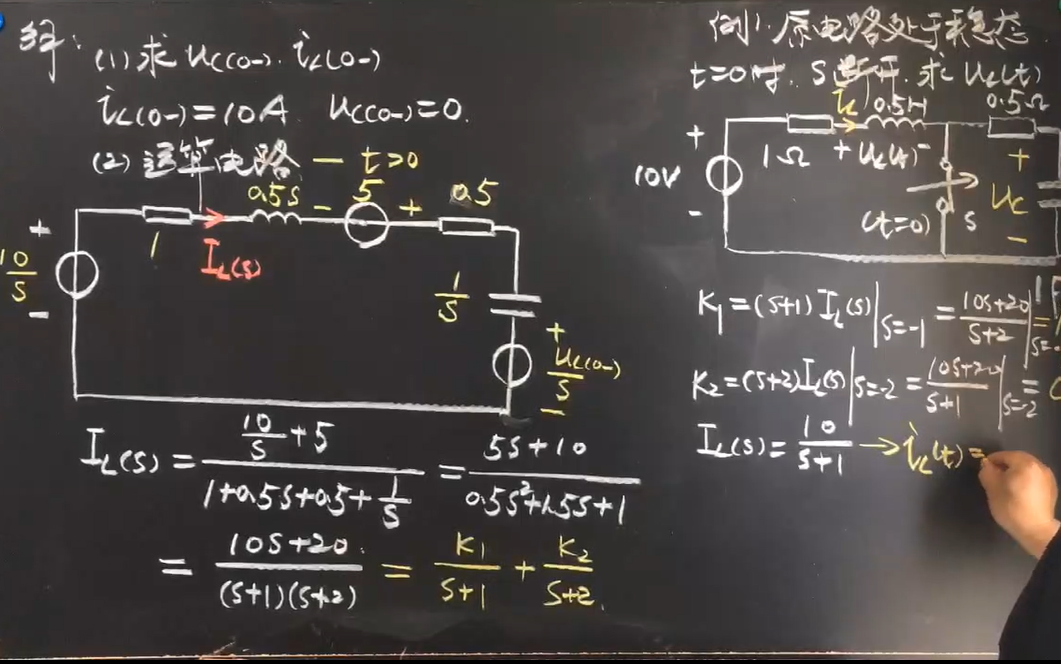 解:
(1) 求 uC(0-). iL(0-)
iL(0-)=10A uC(0-)=0.
(2) 运算电路 — t>0
0.5s - 5 + 0.5
+ 10/s -
1
IL(s)
1/s
+ uC(0-)/s -
IL(s) = (10/s + 5)/(1+0.5s+0.5+1/s) = (5s+10)/(0.5s²+1.5s+1)
= (10s+20)/((s+1)(s+2)) = K1/(s+1) + K2/(s+2)
例1. 原电路处于稳态
t=0时. S断开. 求 uL(t)
iL 0.5H 0.5Ω
+ 10V -
1Ω + uL(t) -
+ uC -
(t=0) S
K1=(s+1) IL(s)|s=-1 = (10s+20)/(s+2)|s=-
K2=(s+2)IL(s)|s=-2 = (10s+20)/(s+1)|s=-2 =
IL(s)= 10/(s+1) → iL(t)=